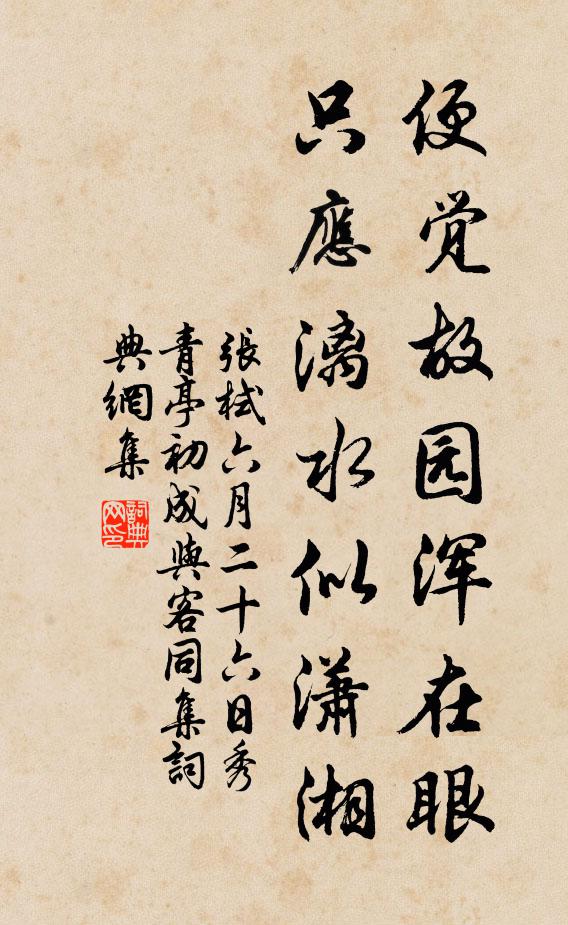 便觉故园浑在眼
只應漓水似瀟湘
張栻六月二十六日秀
青亭初成與客同集詞
典網集
詞典
网印